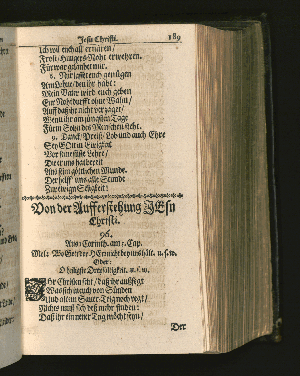 Jesu Christi. 189
Ich wil euch all ernären/
Frost/ Hungers-Noht erwehren.
Fürwar gläubet mir.
8. Nur lasset euch genügen
Am Lohne/ den ihr habt:
Mein Vater wird euch geben
Eur Nohtdurfft ohne
Auff daß ihr nicht verzaget/
Wenn ihr am jüngsten Tage
Fürm Sohn des Menschen steht.
9. Danck/ Preiß/ Lob und auch Ehre
Sey GOtt in Ewigkeit
Vor seine süsse Lehre/
Die er uns hat bereit
Aus sein göttlichem Munde.
Der helff uns alle Stunde
Zur ewigen Seligkeit!
Von der Aufferstehung JEsu
Christi.
96.
Aus 1 Corinth. am 5. Cap.
Mel: Wo Gott der HErr nicht bey uns hält. u.s.w.
Oder:
O heilige Dreyfaltigkeit. u.s.w.
Ihr Christen seht/ daß ihr außfegt
Was sich in euch von Sünden
Und altem Sauer-Teig noch regt/
Nichts muß sich deß mehr finden:
Daß ihr ein neuer Teig möcht seyn/
Der